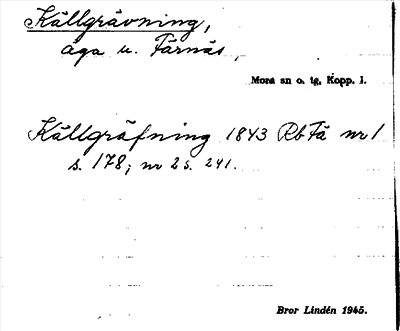 Källgrävning,
äga u. Färnäs,
Mora sn o. tg, Kopp. l.
Källgräfning 1843 Rb Fä nr 1
s. 178; nr 2 s. 241.
Bror Lindén 1945.